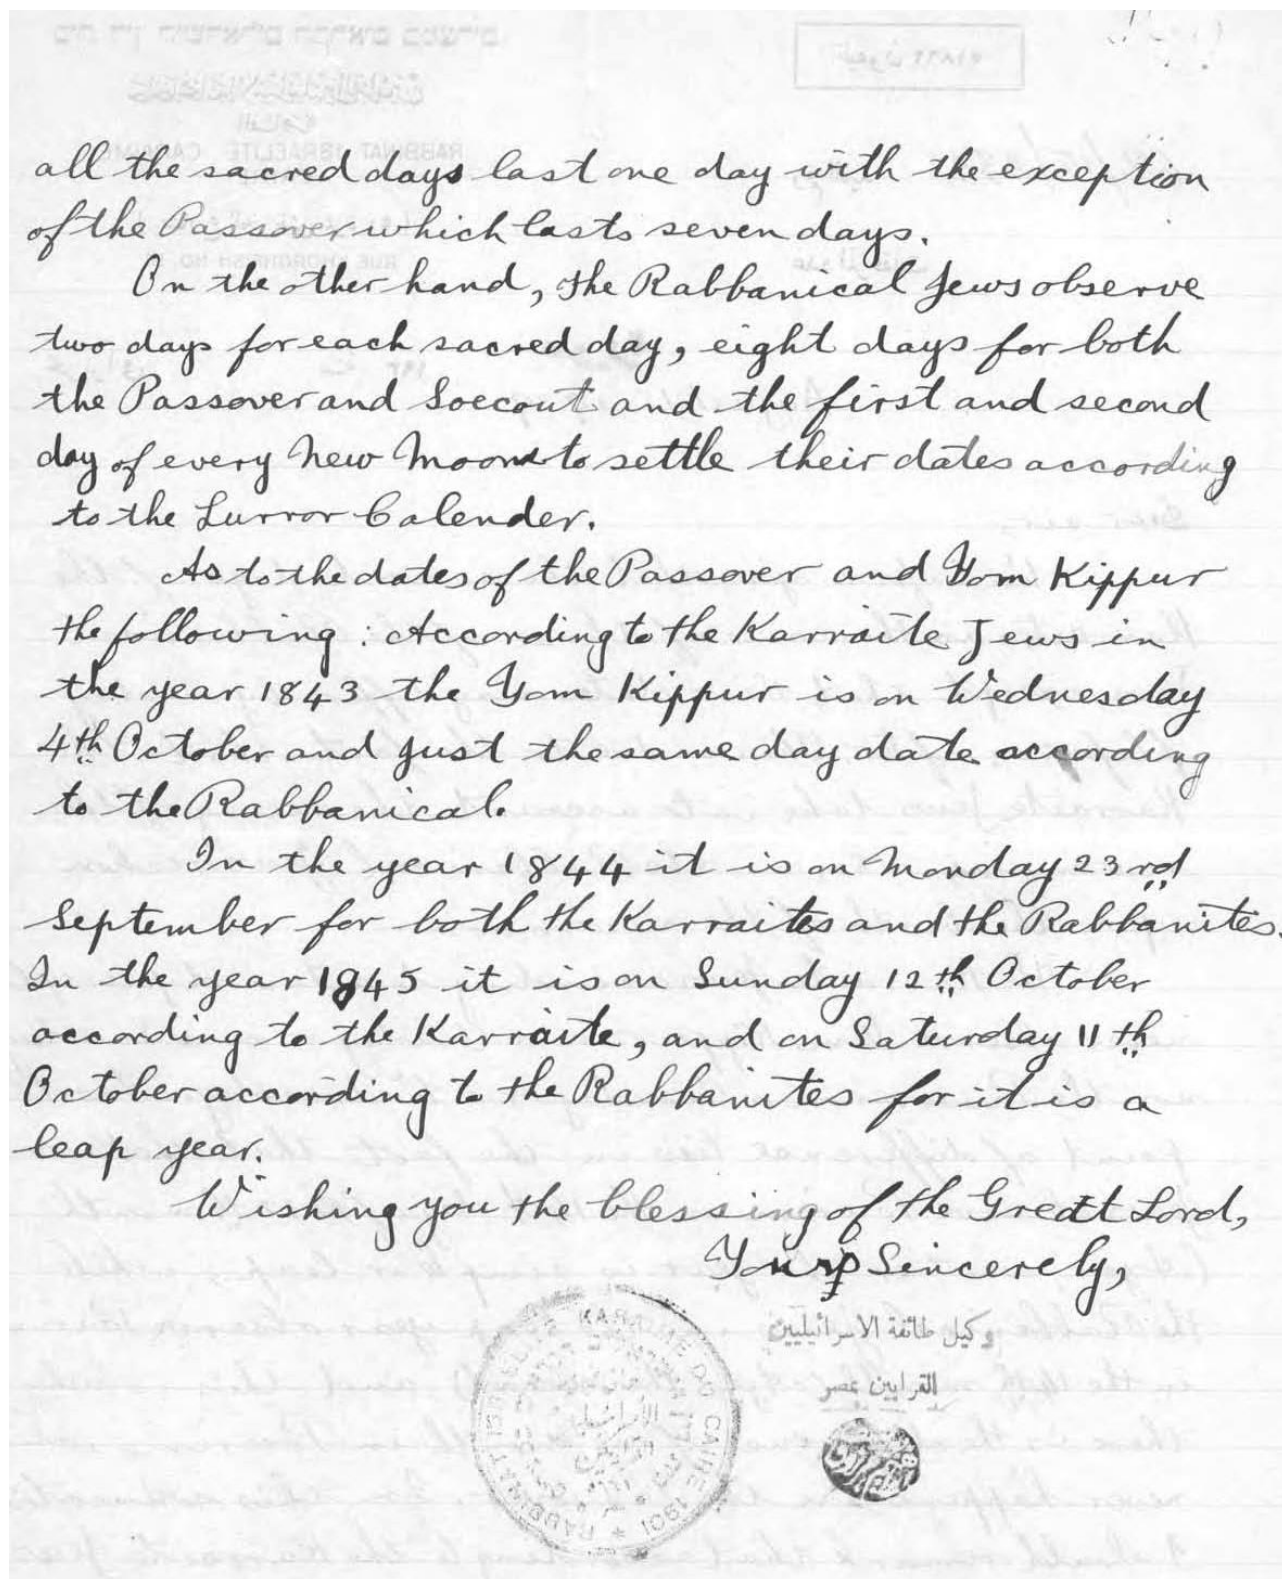 RABBINAT ISRAELITE
all the sacred days last one day with the exception
of the Passover which lasts seven days.
On the other hand, the Rabbanical Jews observe
two days for each sacred day, eight days for both
the Passover and Soecout and the first and second
day of every New Moon to settle their dates according
to the Lurror Calender.
As to the dates of the Passover and Yom Kippur
the following : According to the Karraite Jews in
the year 1843 the Yom Kippur is on Wednesday
4th October and just the same day date according
to the Rabbanical.
In the year 1844 it is on Monday 23rd
September for both the Karraites and the Rabbanites.
In the year 1845 it is on Sunday 12th October
according to the Karraite, and on Saturday 11th
October according to the Rabbanites for it is a
leap year.
Wishing you the blessing of the Great Lord,
Yours Sincerely,
وكيل طائفة الاسرائيليين
القرايين بمصر
RABBINAT ISRAELITE KARAIME DU CAIRE 1901